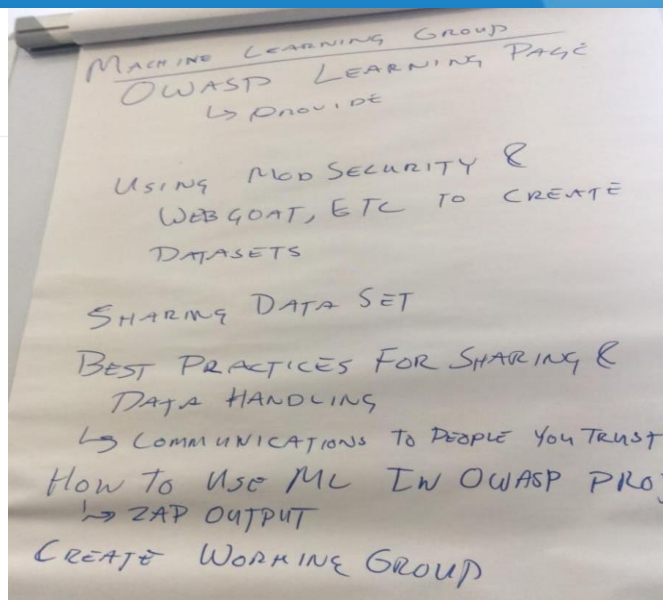 MACHINE LEARNING GROUP
OWASP LEARNING PAGE
↳ PROVIDE
USING MOD SECURITY &
WEBGOAT, ETC TO CREATE
DATASETS
SHARING DATA SET
BEST PRACTICES FOR SHARING &
DATA HANDLING
↳ COMMUNICATIONS TO PEOPLE YOU TRUST
HOW TO USE ML IN OWASP PROJ
↳ ZAP OUTPUT
CREATE WORKING GROUP